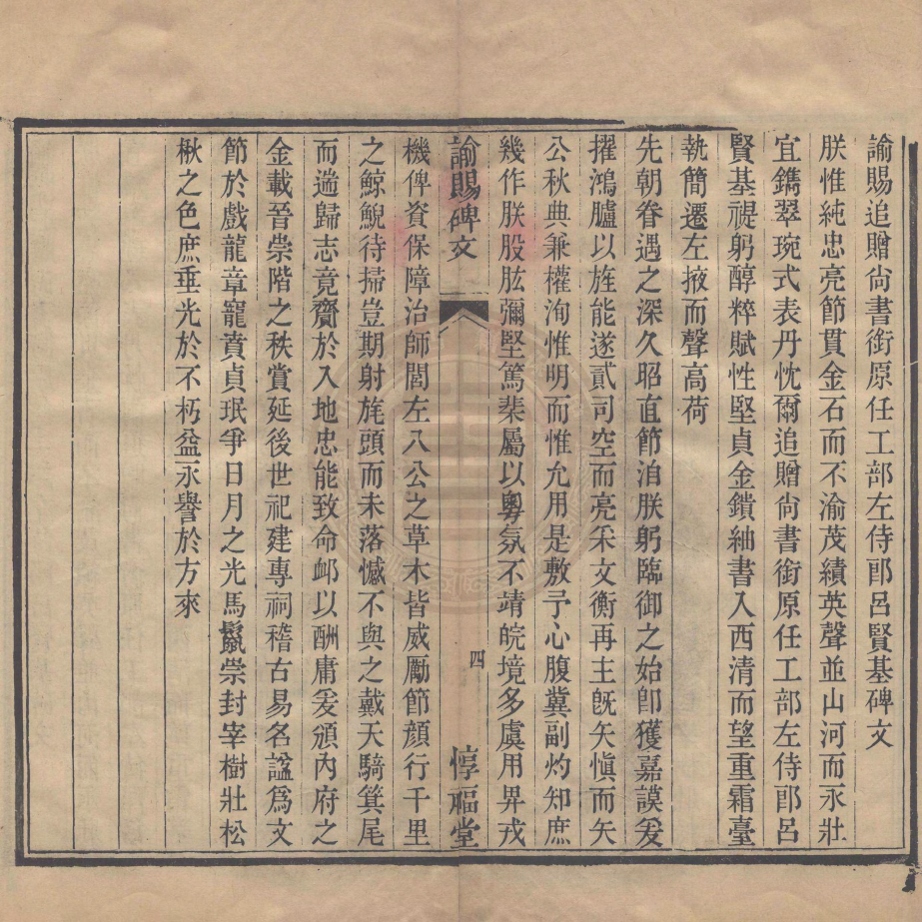 諭賜追贈尙書銜原任工部左侍郎呂賢基碑文
朕惟純忠亮節貫金石而不渝茂績英聲並山河而永壯
宜鐫翠琬式表丹忱爾追贈尙書銜原任工部左侍郎呂
賢基禔躬醇粹賦性堅貞金鐀紬書入西清而望重霜臺
執簡遷左掖而聲高荷
先朝眷遇之深久昭直節洎朕躬臨御之始卽獲嘉謨爰
擢鴻臚以旌能遂貳司空而亮采文衡再主旣矢愼而矢
公秋典兼權洵惟明而惟允用是敷予心腹冀副灼知庶
幾作朕股肱彌堅篤棐屬以粵氛不靖皖境多虞用畀戎
諭賜碑文
四
惇福堂
機俾資保障治師閭左八公之草木皆威勵節顔行千里
之鯨鯢待掃豈期射旄頭而未落憾不與之戴天騎箕尾
而遄歸志竟齎於入地忠能致命卹以酬庸爰頒內府之
金載晉崇階之秩賞延後世祀建專祠稽古易名諡爲文
節於戲龍章寵賁貞珉爭日月之光馬鬣崇封宰樹壯松
楸之色庶垂光於不朽益永譽於方來